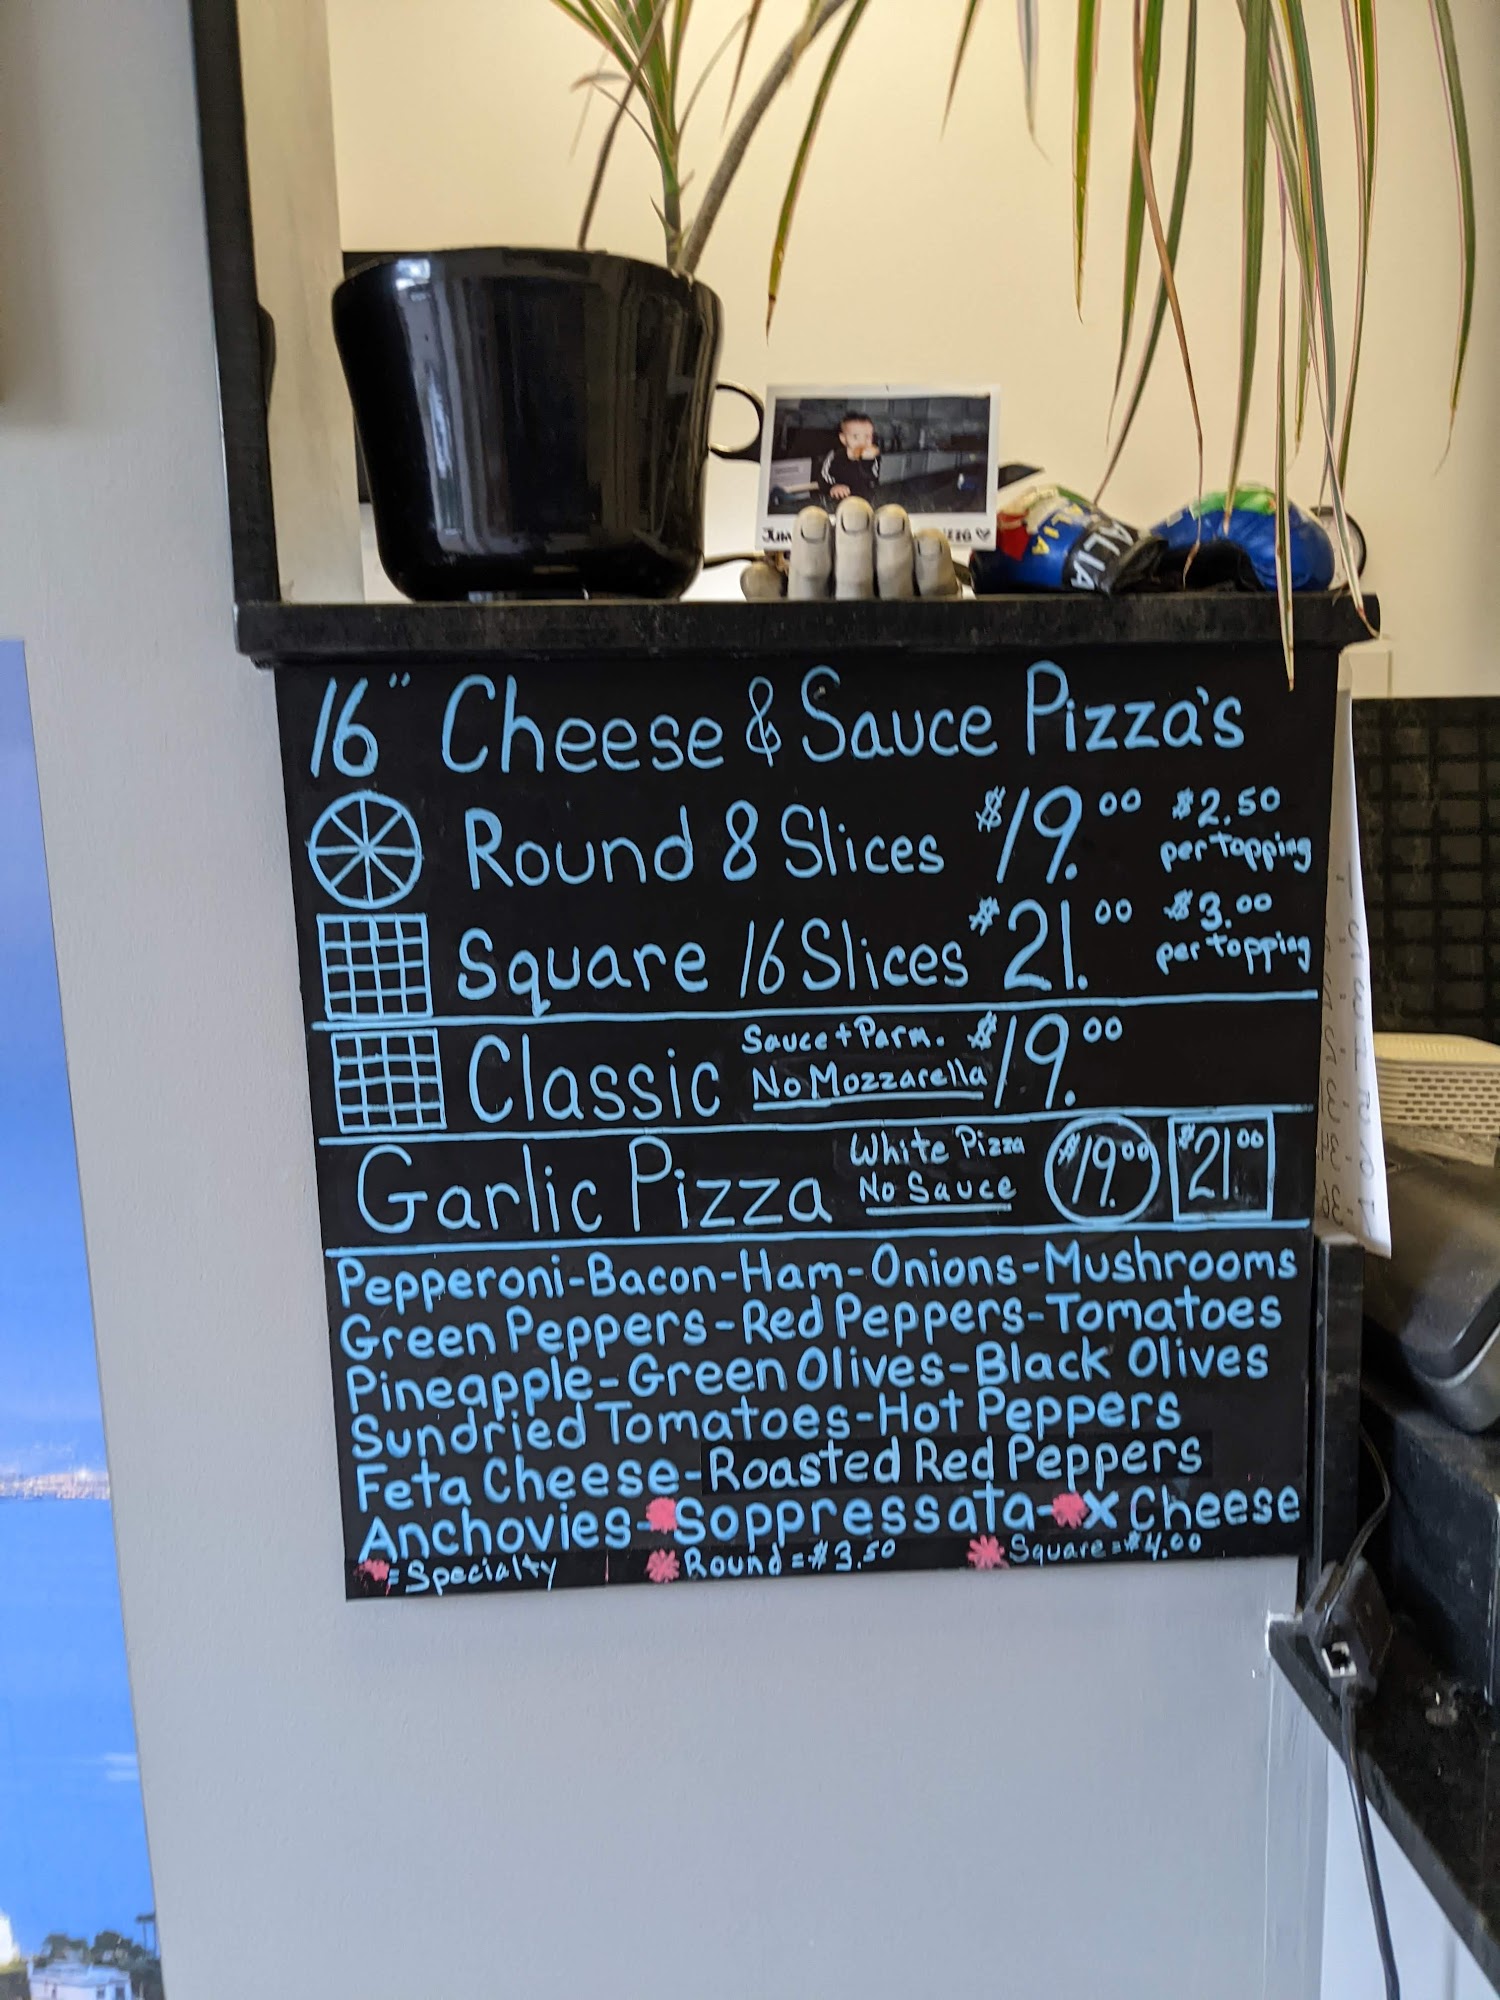 16" Cheese & Sauce Pizza's
Round 8 Slices $19.00 $2.50
per topping
Square 16 Slices $21.00 $3.00
per topping
Classic Sauce + Parm. $19.00
No Mozzarella
Garlic Pizza White Pizza $19.00 $21.00
No Sauce
Pepperoni-Bacon-Ham-Onions-Mushrooms
Green Peppers-Red Peppers-Tomatoes
Pineapple-Green Olives-Black Olives
Sundried Tomatoes-Hot Peppers
Feta Cheese-Roasted Red Peppers
Anchovies-*Soppressata-*x Cheese
*=Specialty *Round=$3.50 *Square=$4.00
ALIA